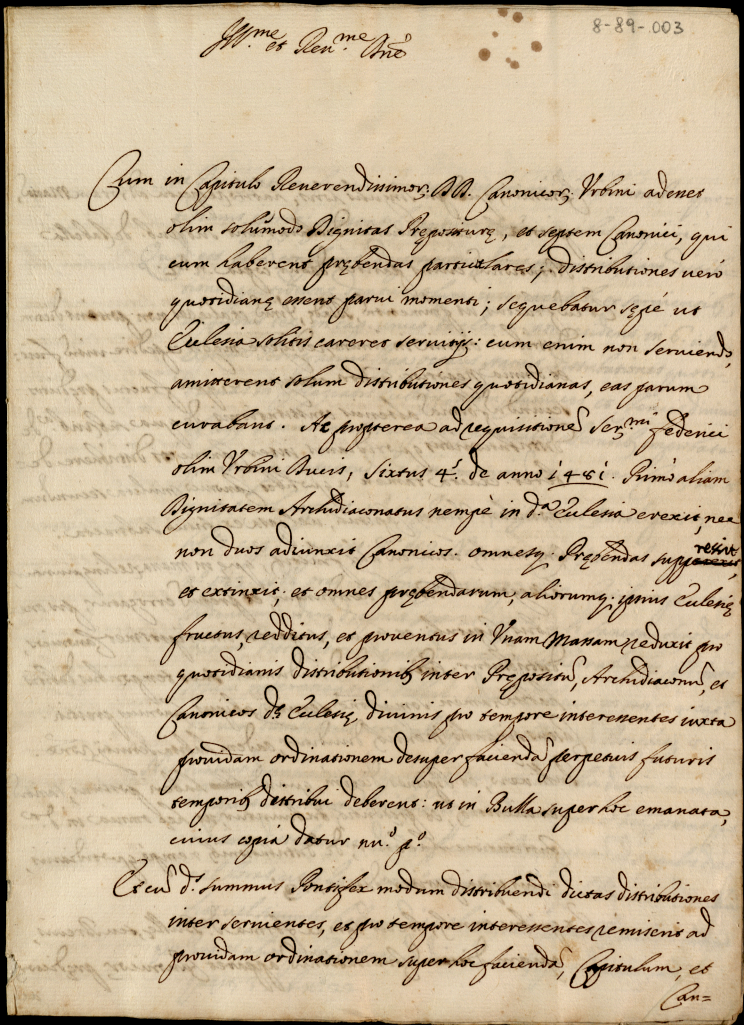 8-89-.003
Ill.me et Reu.me Dne
Cum in Capitulo Reuerendissimor; DD. Canonicor; Vrbini adenet
olim solumodo Dignitas Prępositurę, et septem Canonici, qui
cum haberent prębendas particulares; distributiones uerò
quotidianę essent parui momenti; sequebatur sępè ut
Ecclesia solitis careret seruitijs: cum enim non seruiendo,
amitterent solum distributiones quotidianas, eas parum
curabant. Ac propterea ad requisitionē Ser.mi Federici
olim Vrbini Ducis, Sixtus 4.s de anno 1481. Primò aliam
Dignitatem Archidiaconatus nempè in d.a Ecclesia erexit, nec
non duos adiunxit Canonicos. omnesq. Prębendas suppressit,
et extinxit; et omnes prębendarum, aliorumq. ipsius Ecclesię
fructus, redditus, et prouentus in Vnam Massam reduxit pro
quotidianis distributionib; inter Prępositū, Archidiaconū, et
Canonicos d.ę Ecclesię diuinis pro tempore interessentes iuxta
prouidam ordinationem desuper faciendā perpetuis futuris
temporib; distribui deberent: ut in Bulla super hoc emanata,
cuius copia datur nu.o p.o
Et cū d.s summus Pontifex modum distribuendi dictas distributiones
inter seruientes, et pro tempore interessentes remiserit ad
prouidam ordinationem super hoc faciendā, Capitulum, et
Can=